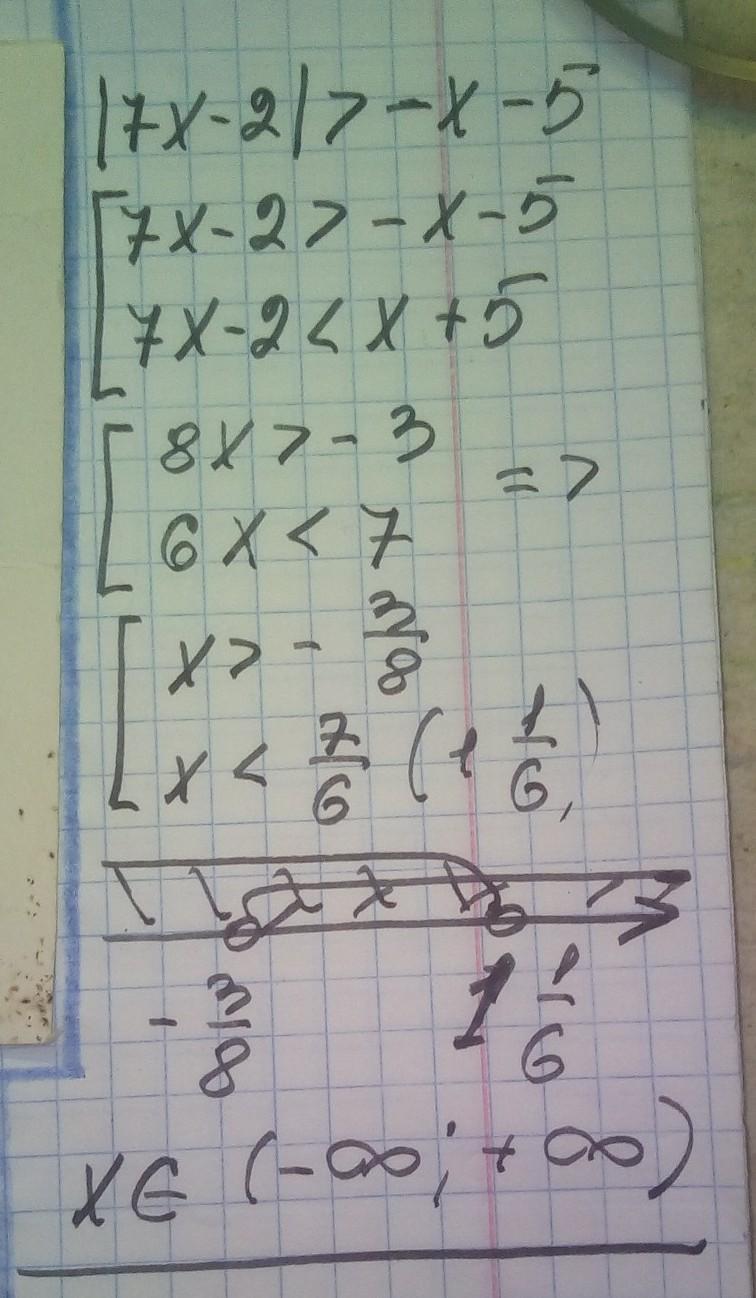 |7x-2|>-x-5
[7x-2>-x-5
7x-2<x+5
[8x>-3
6x<7
=>
[x>-3/8
x<7/6 (1 1/6)
-3/8 1 1/6
x∈(-∞;+∞)